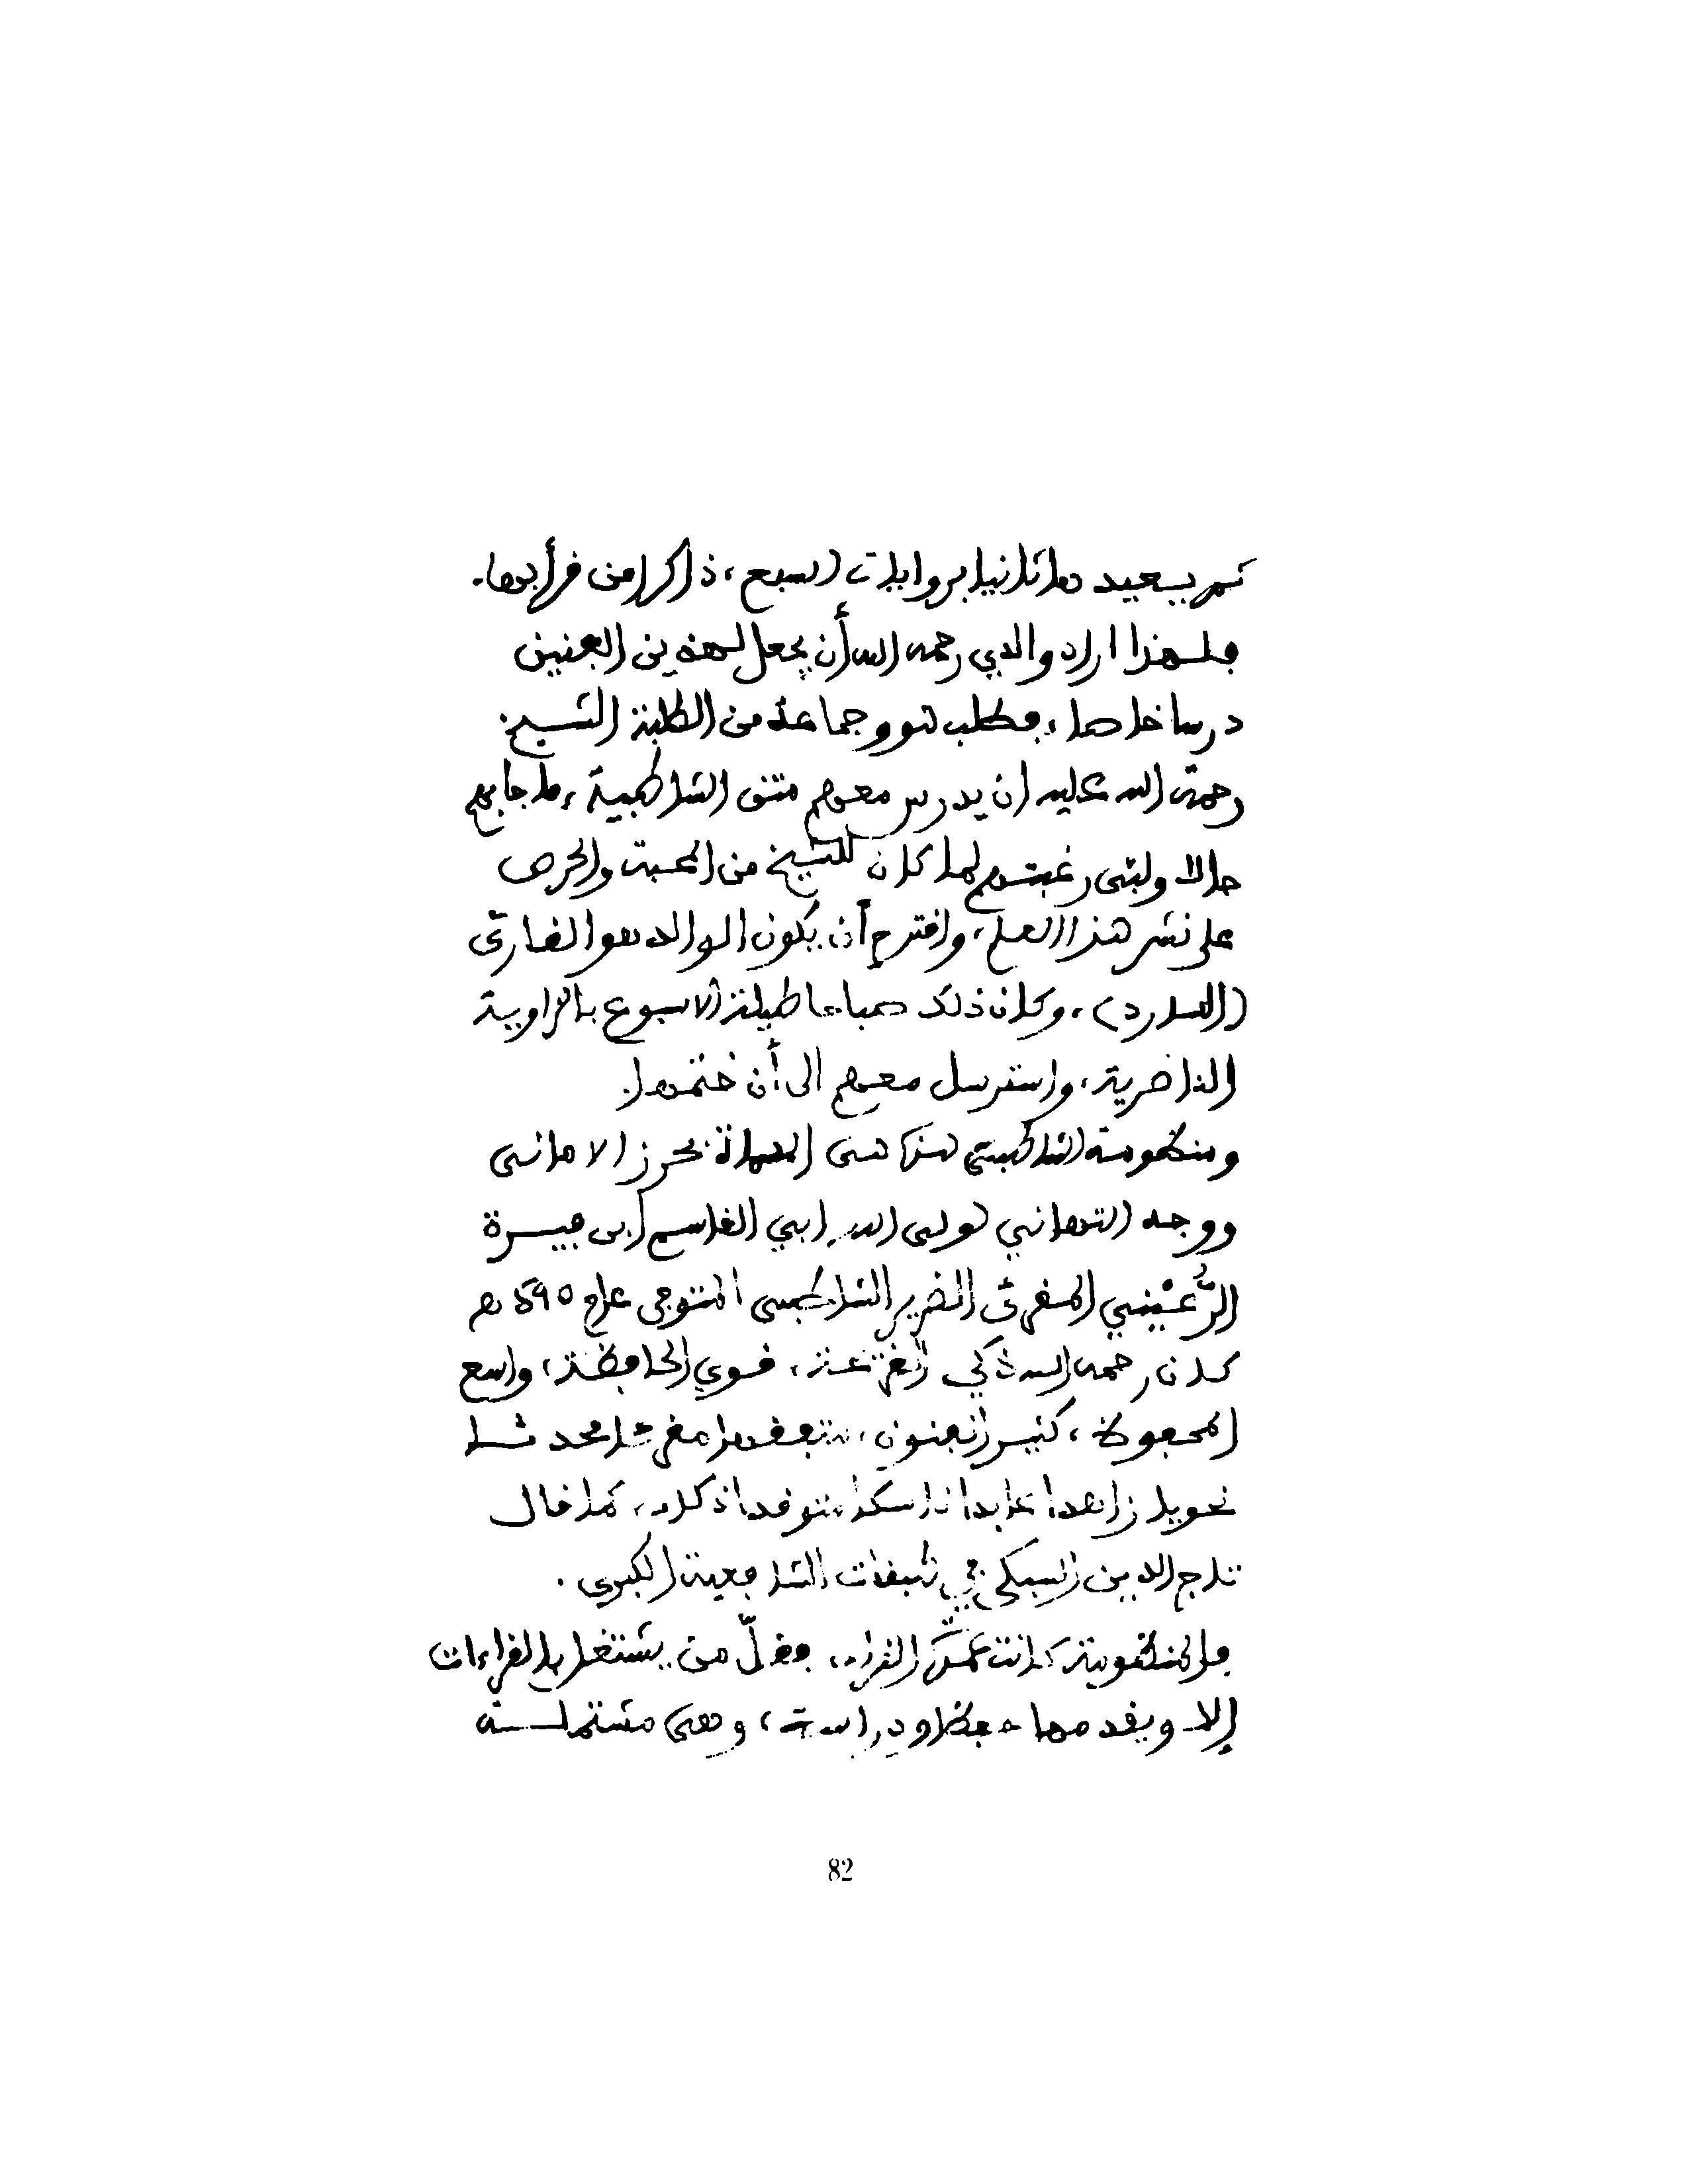 ثم يعيدها ثانيا بروايات السبع، ذاكرا من قرأ بها.
فلهذا اراد والدي رحمه الله أن يجعل لهذين الفنين
درسا خاصا، فطلب هو وجماعة من الطلبة الشيخ
رحمة الله عليه ان يدرس معهم متن الشاطبية، فاجابهم
حالا ولبى رغبتهم لما كان للشيخ من المحبة والحرص
على نشر هذا العلم، واقترح أن يكون الوالد هو القارئ
(السارد)، وكان ذلك صباحا طيلة الاسبوع بالزاوية
الناصرية، واسترسل معهم الى أن ختمها.
ومنظومة الشاطبي هذه هى المسماة بحرز الامانى
ووجه التهاني لولى الله ابي القاسم ابن فيرة
الرُّعيْني المقرئ الضرير الشاطبى المتوفى عام 590 هـ
كان رحمه الله ذكي القريحة، قوي الحافظة، واسع
المحفوظ، كثير الفنون، فقيها مقرئا محدثا
نحويا زاهدا عابدا ناسكا متوقدا ذكاء، كما قال
تاج الدين السبكي في طبقات الشافعية الكبرى.
فالمنظومة كانت عمدة القراء، فقلّ من يشتغل بالقراءات
إلا ويقدمها حفظا ودراسة، وهى مشتملة
82